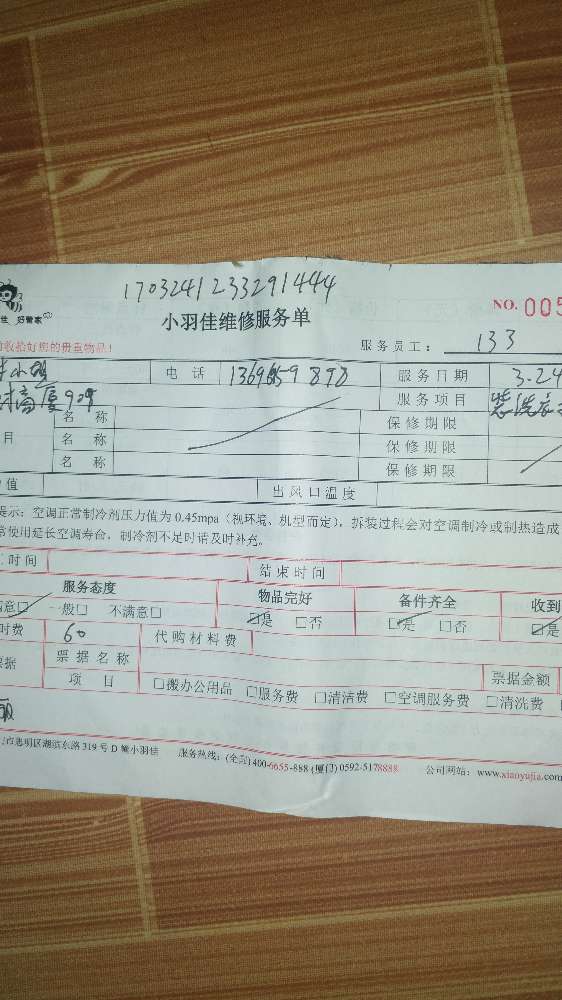 1703241233291444
佳 好管家
NO. 005
小羽佳维修服务单
收拾好您的贵重物品!
服务员工: 133
电 话
服务日期 3.24
服务项目 装洗衣
名 称 保修期限
目 名 称 保修期限
名 称 保修期限
值 出风口温度
提示: 空调正常制冷剂压力值为 0.45mpa (视环境、机型而定), 拆装过程会对空调制冷或制热造成
常使用延长空调寿命, 制冷剂不足时请及时补充。
时间 结束时间
服务态度 物品完好 备件齐全 收到
满意☑ 一般□ 不满意□ ☑是 □否 ☑是 □否 ☑是
时费 60 代购材料费
票据 票据名称 票据金额
项 目 □搬办公用品 □服务费 □清洁费 □空调服务费 □清洗费
市思明区湖滨东路 319 号 D 幢小羽佳 服务热线: (全国) 400-6655-888 (厦门) 0592-5178888 公司网站: www.xiaoyujia.com